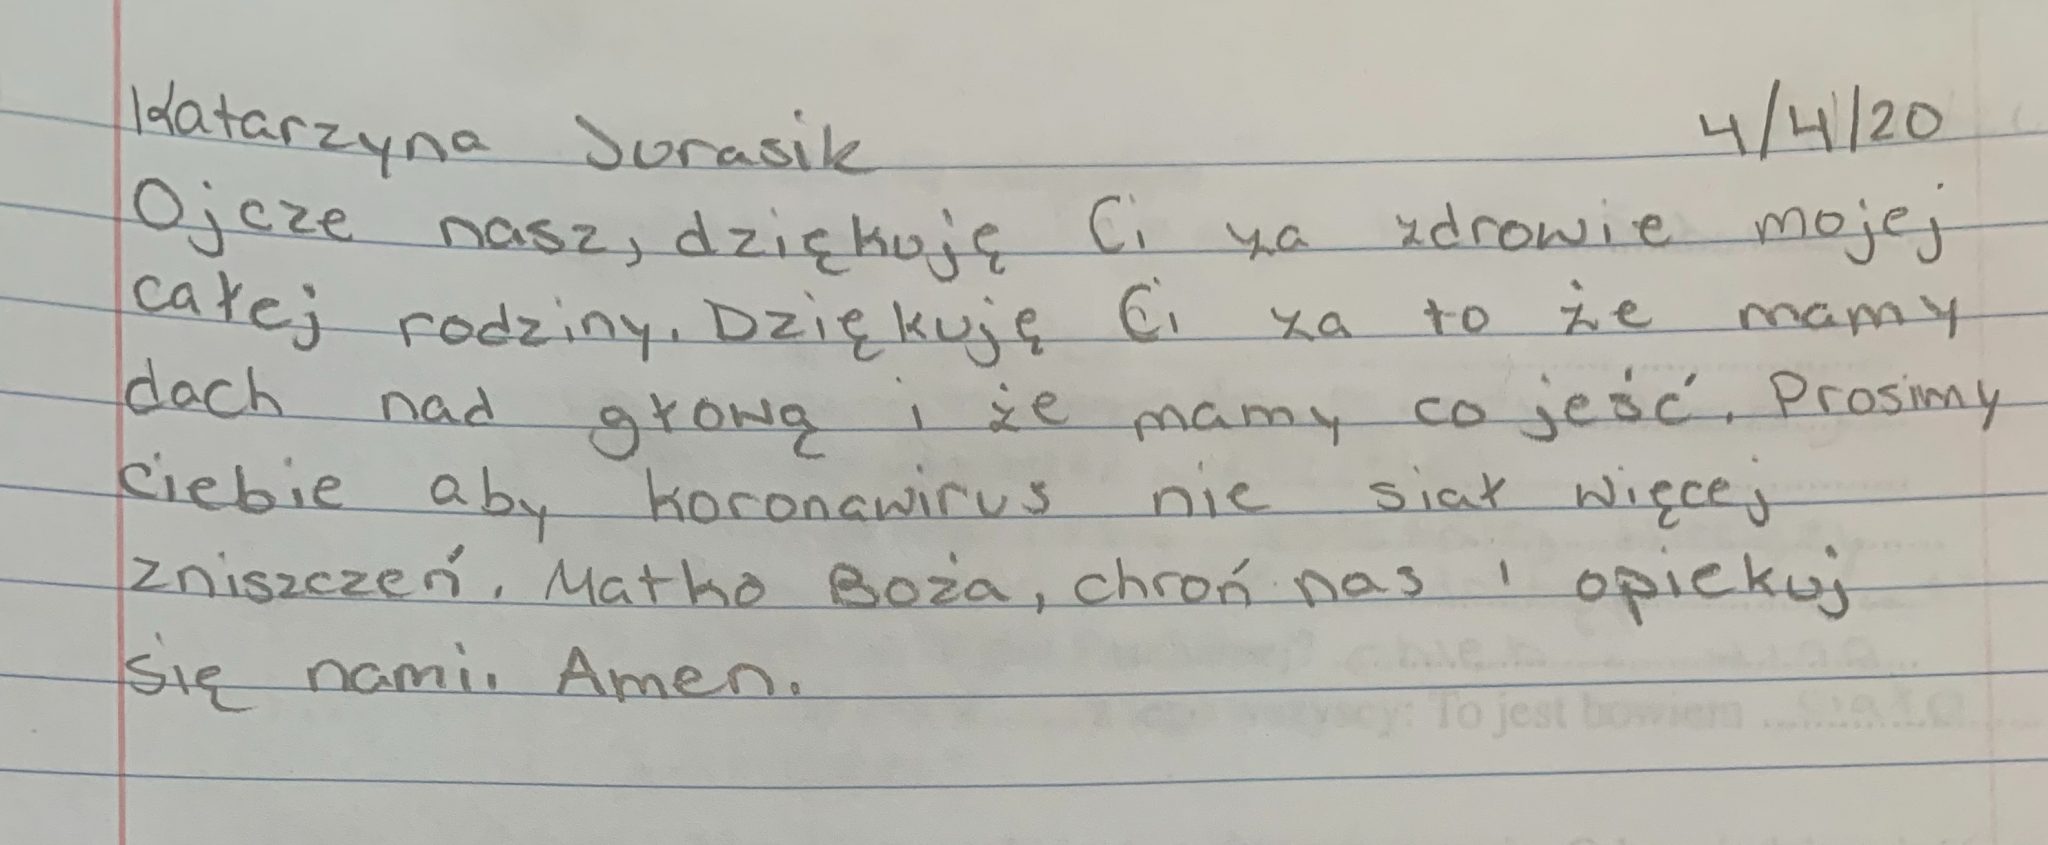 Katarzyna Jurasik 4/4/20
Ojcze nasz, dziękuję Ci za zdrowie mojej
całej rodziny. Dziękuję Ci za to że mamy
dach nad głową i że mamy co jeść. Prosimy
ciebie aby koronawirus nie siał więcej
zniszczeń. Matko Boża, chroń nas i opiekuj
się nami. Amen.
To jest bowiem